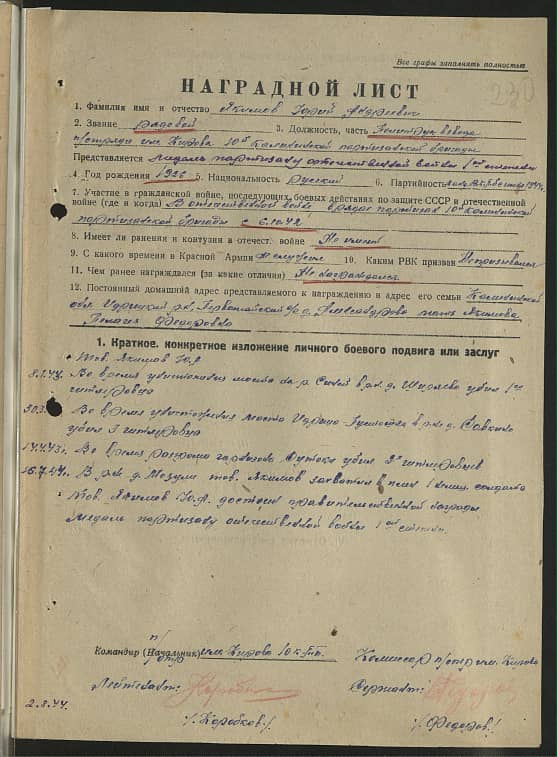 Все графы заполнять полностью
230
НАГРАДНОЙ ЛИСТ
1. Фамилия имя и отчество Якимов Юрий Андреевич
2. Звание рядовой 3. Должность, часть Политрук взвода
п/отряда им. Кирова 10й Калининской партизанской бригады
Представляется медаль партизану отечественной войны 1ой степени
4. Год рождения 1926 5. Национальность русский 6. Партийность
7. Участие в гражданской войне, последующих боевых действиях по защите СССР и отечественной
войне (где и когда) В отечественной войне в рядах партизан 10й Калининской
партизанской бригады с 6.10.42
8. Имеет ли ранения и контузии в отечест. войне Не имеет
9. С какого времени в Красной Армии Не служил 10. Каким РВК призван Не призывался
11. Чем ранее награждался (за какие отличия) Не награждался
12. Постоянный домашний адрес представляемого к награждению и адрес его семьи Калининская
обл. Идрицкий р-н, Первомайский с/с д. Александрово мать Якимова
Пелагея Федоровна
1. Краткое, конкретное изложение личного боевого подвига или заслуг
Тов. Якимов Ю.А
8.1.44. Во время уничтожения моста на р. в р-не д. убил 1го
гитлеровца
30.3. Во время уничтожения моста Идрица Пустошка в р-не д. Савкино
убил 3 гитлеровца
14.4.43г. Во время разгрома гарнизона убил 2х гитлеровцев
15.7.44г. В р-не д. Мозули тов. Якимов захватил в плен 1 немец. солдата
Тов. Якимов Ю.А. достоин правительственной награды
медаль партизану отечественной войны 1ой степени.
Командир (Начальник) п/отр им. Кирова 10 к.п.б.
Комиссар п/отр им. Кирова
Лейтенант: Коробков
Сержант: Федоров
2.8.44.
/Коробков/
/Федоров/